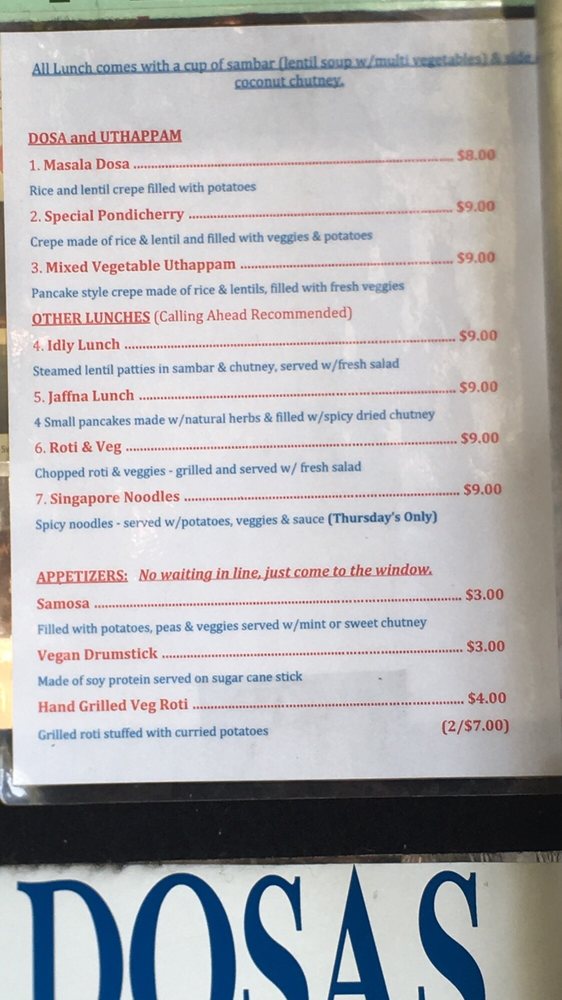 All Lunch comes with a cup of sambar (lentil soup w/multi vegetables) & side
coconut chutney.
DOSA and UTHAPPAM
1. Masala Dosa ........ $8.00
Rice and lentil crepe filled with potatoes
2. Special Pondicherry ........ $9.00
Crepe made of rice & lentil and filled with veggies & potatoes
3. Mixed Vegetable Uthappam ........ $9.00
Pancake style crepe made of rice & lentils, filled with fresh veggies
OTHER LUNCHES (Calling Ahead Recommended)
4. Idly Lunch ........ $9.00
Steamed lentil patties in sambar & chutney, served w/fresh salad
5. Jaffna Lunch ........ $9.00
4 Small pancakes made w/natural herbs & filled w/spicy dried chutney
6. Roti & Veg ........ $9.00
Chopped roti & veggies - grilled and served w/ fresh salad
7. Singapore Noodles ........ $9.00
Spicy noodles - served w/potatoes, veggies & sauce (Thursday's Only)
APPETIZERS: No waiting in line, just come to the window.
Samosa ........ $3.00
Filled with potatoes, peas & veggies served w/mint or sweet chutney
Vegan Drumstick ........ $3.00
Made of soy protein served on sugar cane stick
Hand Grilled Veg Roti ........ $4.00
Grilled roti stuffed with curried potatoes (2/$7.00)
DOSAS